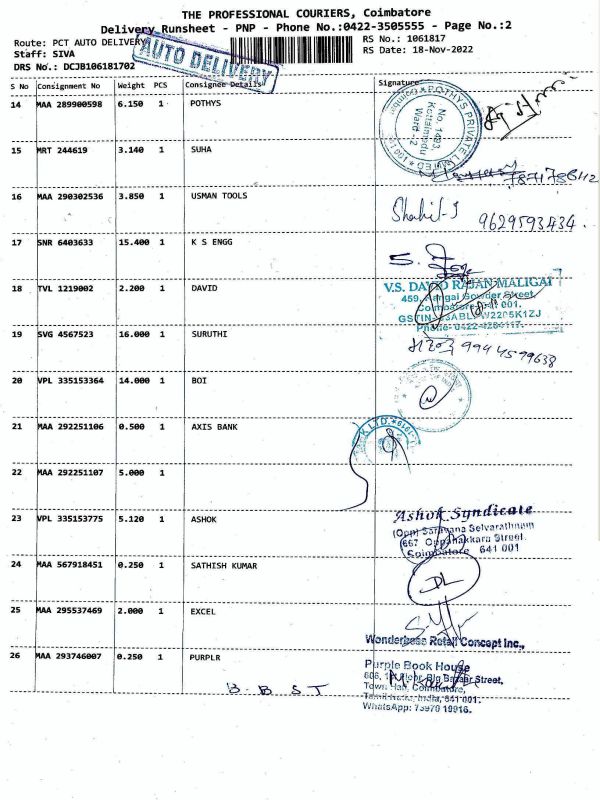 THE PROFESSIONAL COURIERS, Coimbatore
Delivery Runsheet - PNP - Phone No.:0422-3505555 - Page No.:2
Route: PCT AUTO DELIVERY
RS No.: 1061817
Staff: SIVA
RS Date: 18-Nov-2022
DRS No.: DCJB106181702
AUTO DELIVERY
S No Consignment No Weight PCS Consignee Details Signature
14 MAA 289900598 6.150 1 POTHYS
POTHYS PRIVATE LIMITED
No. 1493,
Kottaimedu
Ward - 2
15 MRT 244619 3.140 1 SUHA
16 MAA 290302536 3.850 1 USMAN TOOLS
Shahil-J
9629593434.
17 SNR 6403633 15.400 1 K S ENGG
18 TVL 1219002 2.200 1 DAVID
V.S. DAVID RAJAN MALIGAI
459, Rangai Gowder Street,
Coimbatore 641 001.
19 SVG 4567523 16.000 1 SURUTHI
9944599638
20 VPL 335153364 14.000 1 BOI
21 MAA 292251106 0.500 1 AXIS BANK
22 MAA 292251107 5.000 1
23 VPL 335153775 5.120 1 ASHOK
Ashok Syndicate
(Opp) Saravana Selvarathnam
667 Oppanakkara Street
Coimbatore 641 001
24 MAA 567918451 0.250 1 SATHISH KUMAR
DL
25 MAA 295537469 2.000 1 EXCEL
Wonderbase Retail Concept Inc.,
26 MAA 293746007 0.250 1 PURPLR
Purple Book House
Big Bazaar Street,
Town Hall, Coimbatore,
Tamil Nadu, India, 641 001.
WhatsApp: 73970 19916.
B. B S T